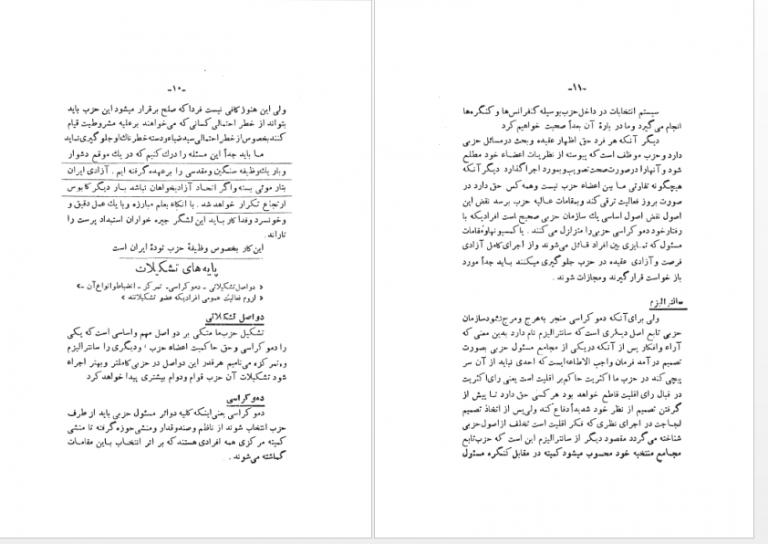 -۱۰-
ولی این هنوز کافی نیست فردا که صلح برقرار میشود این حزب باید
بتواند از خطر احتمالی کسانی که می‌خواهند بر علیه مشروطیت قیام
کنند بخصوص از خطر احتمالی سید ضیاء و دسته خطر ناك او جلوگیری نماید
ما باید جداً این مسئله را درك کنیم که در یك موقع دشوار
و بار یك وظیفه سنگین و مقدسی را برعهده گرفته ایم. آزادی ایران
بتار موئی بسته واگر اتحاد آزادیخواهان نباشد بار دیگر کابوس
ارتجاع تکرار خواهد شد. با اتکاء بعلم مبارزه و با یك عمل دقیق و
و خونسرد و فداکار باید این لشگر جیره خواران استبداد پرست را
تاراند.
این کار بخصوص وظیفهٔ حزب تودهٔ ایران است
پایه های تشکیلات
« دو اصل تشکیلاتی - دموکراسی. تمرکز - انضباط و انواع آن -
« لزوم فعالیت عمومی افرادیکه عضو تشکیلاتند »
دو اصل تشکلاتی
تشکیل حزب ما متکی بر دو اصل مهم و اساسی است که یکی
را دموکراسی و حق حاکمیت اعضاء حزب ، و دیگری را سانترالیزم
و تمرکز می‌نامیم هر قدر این دو اصل در حزبی کاملتر و بهتر اجراء
شود تشکیلات آن حزب قوام و دوام بیشتری پیدا خواهد کرد
دموکراسی
دموکراسی یعنی اینکه کلیه دوائر مسئول حزبی باید از طرف
حزب انتخاب شوند از ناظم و صندوقدار و منشی حوزه گرفته تا منشی
کمیته مرکزی همه افرادی هستند که بر اثر انتخاب باین مقامات
گماشته می‌شوند .
-۱۱-
سیستم انتخابات در داخل حزب بوسیله کنفرانس‌ها و کنگره‌ها
انجام می‌گیرد و ما در بارهٔ آن بعداً صحبت خواهیم کرد
دیگر آنکه هر فرد حق اظهار عقیده و بحث در مسائل حزبی
دارد و حزب موظف است که پیوسته از نظریات اعضاء خود مطلع
شود و آنها را در صورت صحت تصویب و بمورد اجرا گذارد دیگر آنکه
هیچگونه تفاوتی ما بین اعضاء حزب نیست و همه کس حق دارد در
صورت بروز فعالیت ترقی کند و بمقامات عالیه حزب برسد نقض این
اصول نقض اصول اساسی یك سازمان حزبی صحیح است افرادیکه با
رفتار خود دموکراسی حزبی را متزلزل می‌کنند . یا کمسیونها و مقامات
مسئول که تمایزی بین افراد قائل می‌شوند و از اجرای کامل آزادی
فرصت و آزادی عقیده در حزب جلوگیری میکنند باید جداً مورد
باز خواست قرار گیرند و مجازات شوند .
سانترالیزم
ولی برای آنکه دموکراسی منجر به هرج و مرج نشود سازمان
حزبی تابع اصل دیگری است که سانترالیزم نام دارد بدین معنی که
آراء و افکار پس از آنکه در یکی از مجامع مسئول حزبی بصورت
تصمیم در آمد فرمان واجب الاطاعه ایست که احدی نباید از آن سر
پیچی کند در حزب ما اکثریت حاکم بر اقلیت است یعنی رای اکثریت
در قبال رای اقلیت قاطع خواهد بود هر کسی حق دارد تا پیش از
گرفتن تصمیم از نظر خود شدیداً دفاع کند ولی پس از اتخاذ تصمیم
لجاجت در اجرای نظری که فکر اقلیت است تخلف از اصول حزبی
شناخته می‌گردد مقصود دیگر از سانترالیزم این است که حزب تابع
مجامع منتخبه خود محسوب میشود کمیته در مقابل کنگره مسئول